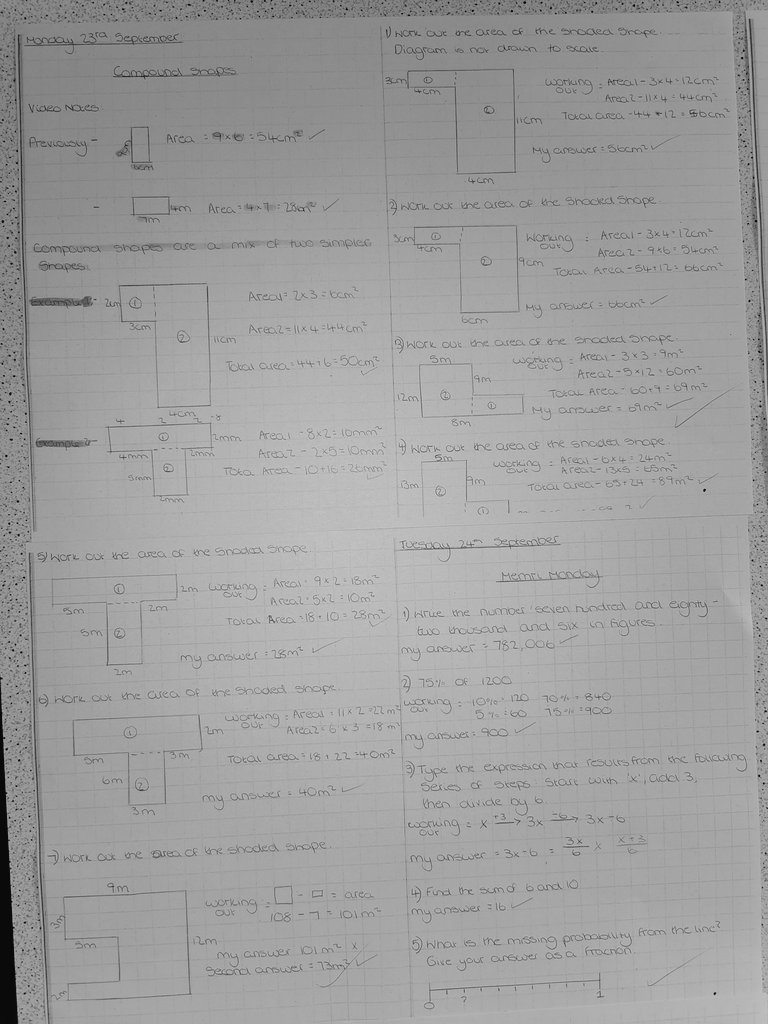 Monday 23rd September
Compound shapes
Video Notes
Previously - Area = 9x6 = 54cm² ✓
6cm
- 4m Area = 4x7 = 28cm² ✓
7m
Compound shapes are a mix of two simpler
shapes.
Example 1- 2cm ① Area1 = 2x3 = 6cm²
3cm
② 11cm Area2 = 11x4 = 44cm²
Total area = 44+6 = 50cm² ✓
4cm
4 2 2 =8
Example 2- ① 2mm Area1 - 8x2 = 10mm²
4mm 2mm Area2 - 2x5 = 10mm²
5mm ② Total Area - 10+16 = 26mm² ✓
2mm
1) Work out the area of the shaded shape.
Diagram is not drawn to scale.
3cm ① 4cm ② 11cm 4cm
Working out = Area1 - 3x4 = 12cm²
Area2 - 11x4 = 44cm²
Total area - 44+12 = 56cm²
My answer = 56cm² ✓
2) Work out the area of the shaded shape.
3cm ① 4cm ② 9cm 6cm
Working out = Area1 - 3x4 = 12cm²
Area2 - 9x6 = 54cm²
Total Area - 54+12 = 66cm²
My answer = 66cm² ✓
3) Work out the area of the shaded shape.
5m 9m 12m ② ① 8m
Working out = Area1 - 3x3 = 9m²
Area2 - 5x12 = 60m²
Total Area - 60+9 = 69m²
My answer = 69m² ✓
4) Work out the area of the shaded shape.
5m 13m ② 9m ①
Working out = Area1 - 6x4 = 24m²
Area2 - 13x5 = 65m²
Total Area - 65+24 = 89m² ✓
5) Work out the area of the shaded shape.
① 2m 5m 2m 5m ② 2m
Working out = Area1 - 9x2 = 18m²
Area2 - 5x2 = 10m²
Total Area = 18+10 = 28m²
My answer = 28m² ✓
6) Work out the area of the shaded shape.
① 2m 5m 3m 6m ② 3m
Working out = Area1 = 11x2 = 22m²
Area2 = 6x3 = 18m²
Total area = 18+22 = 40m²
My answer = 40m² ✓
7) Work out the area of the shaded shape.
9m 3m 5m 12m 2m
Working out = □ - □ = area
108 - 7 = 101m²
My answer 101m² x
Second answer = 73m² ✓
Tuesday 24th September
Memri Monday
1) Write the number seven hundred and eighty-
two thousand and six in figures.
my answer = 782,006 ✓
2) 75% of 1200
Working out = 10% = 120 70% = 840
5% = 60 75% = 900
my answer = 900 ✓
3) Type the expression that results from the following
series of steps: Start with 'x', add 3,
then divide by 6.
Working out = x +3→ 3x ÷6→ 3x÷6
my answer = 3x÷6 = 3x/6 x x+3/6
4) Find the sum of 6 and 10
my answer = 16 ✓
5) What is the missing probability from the line?
Give your answer as a fraction.
0 ? 1